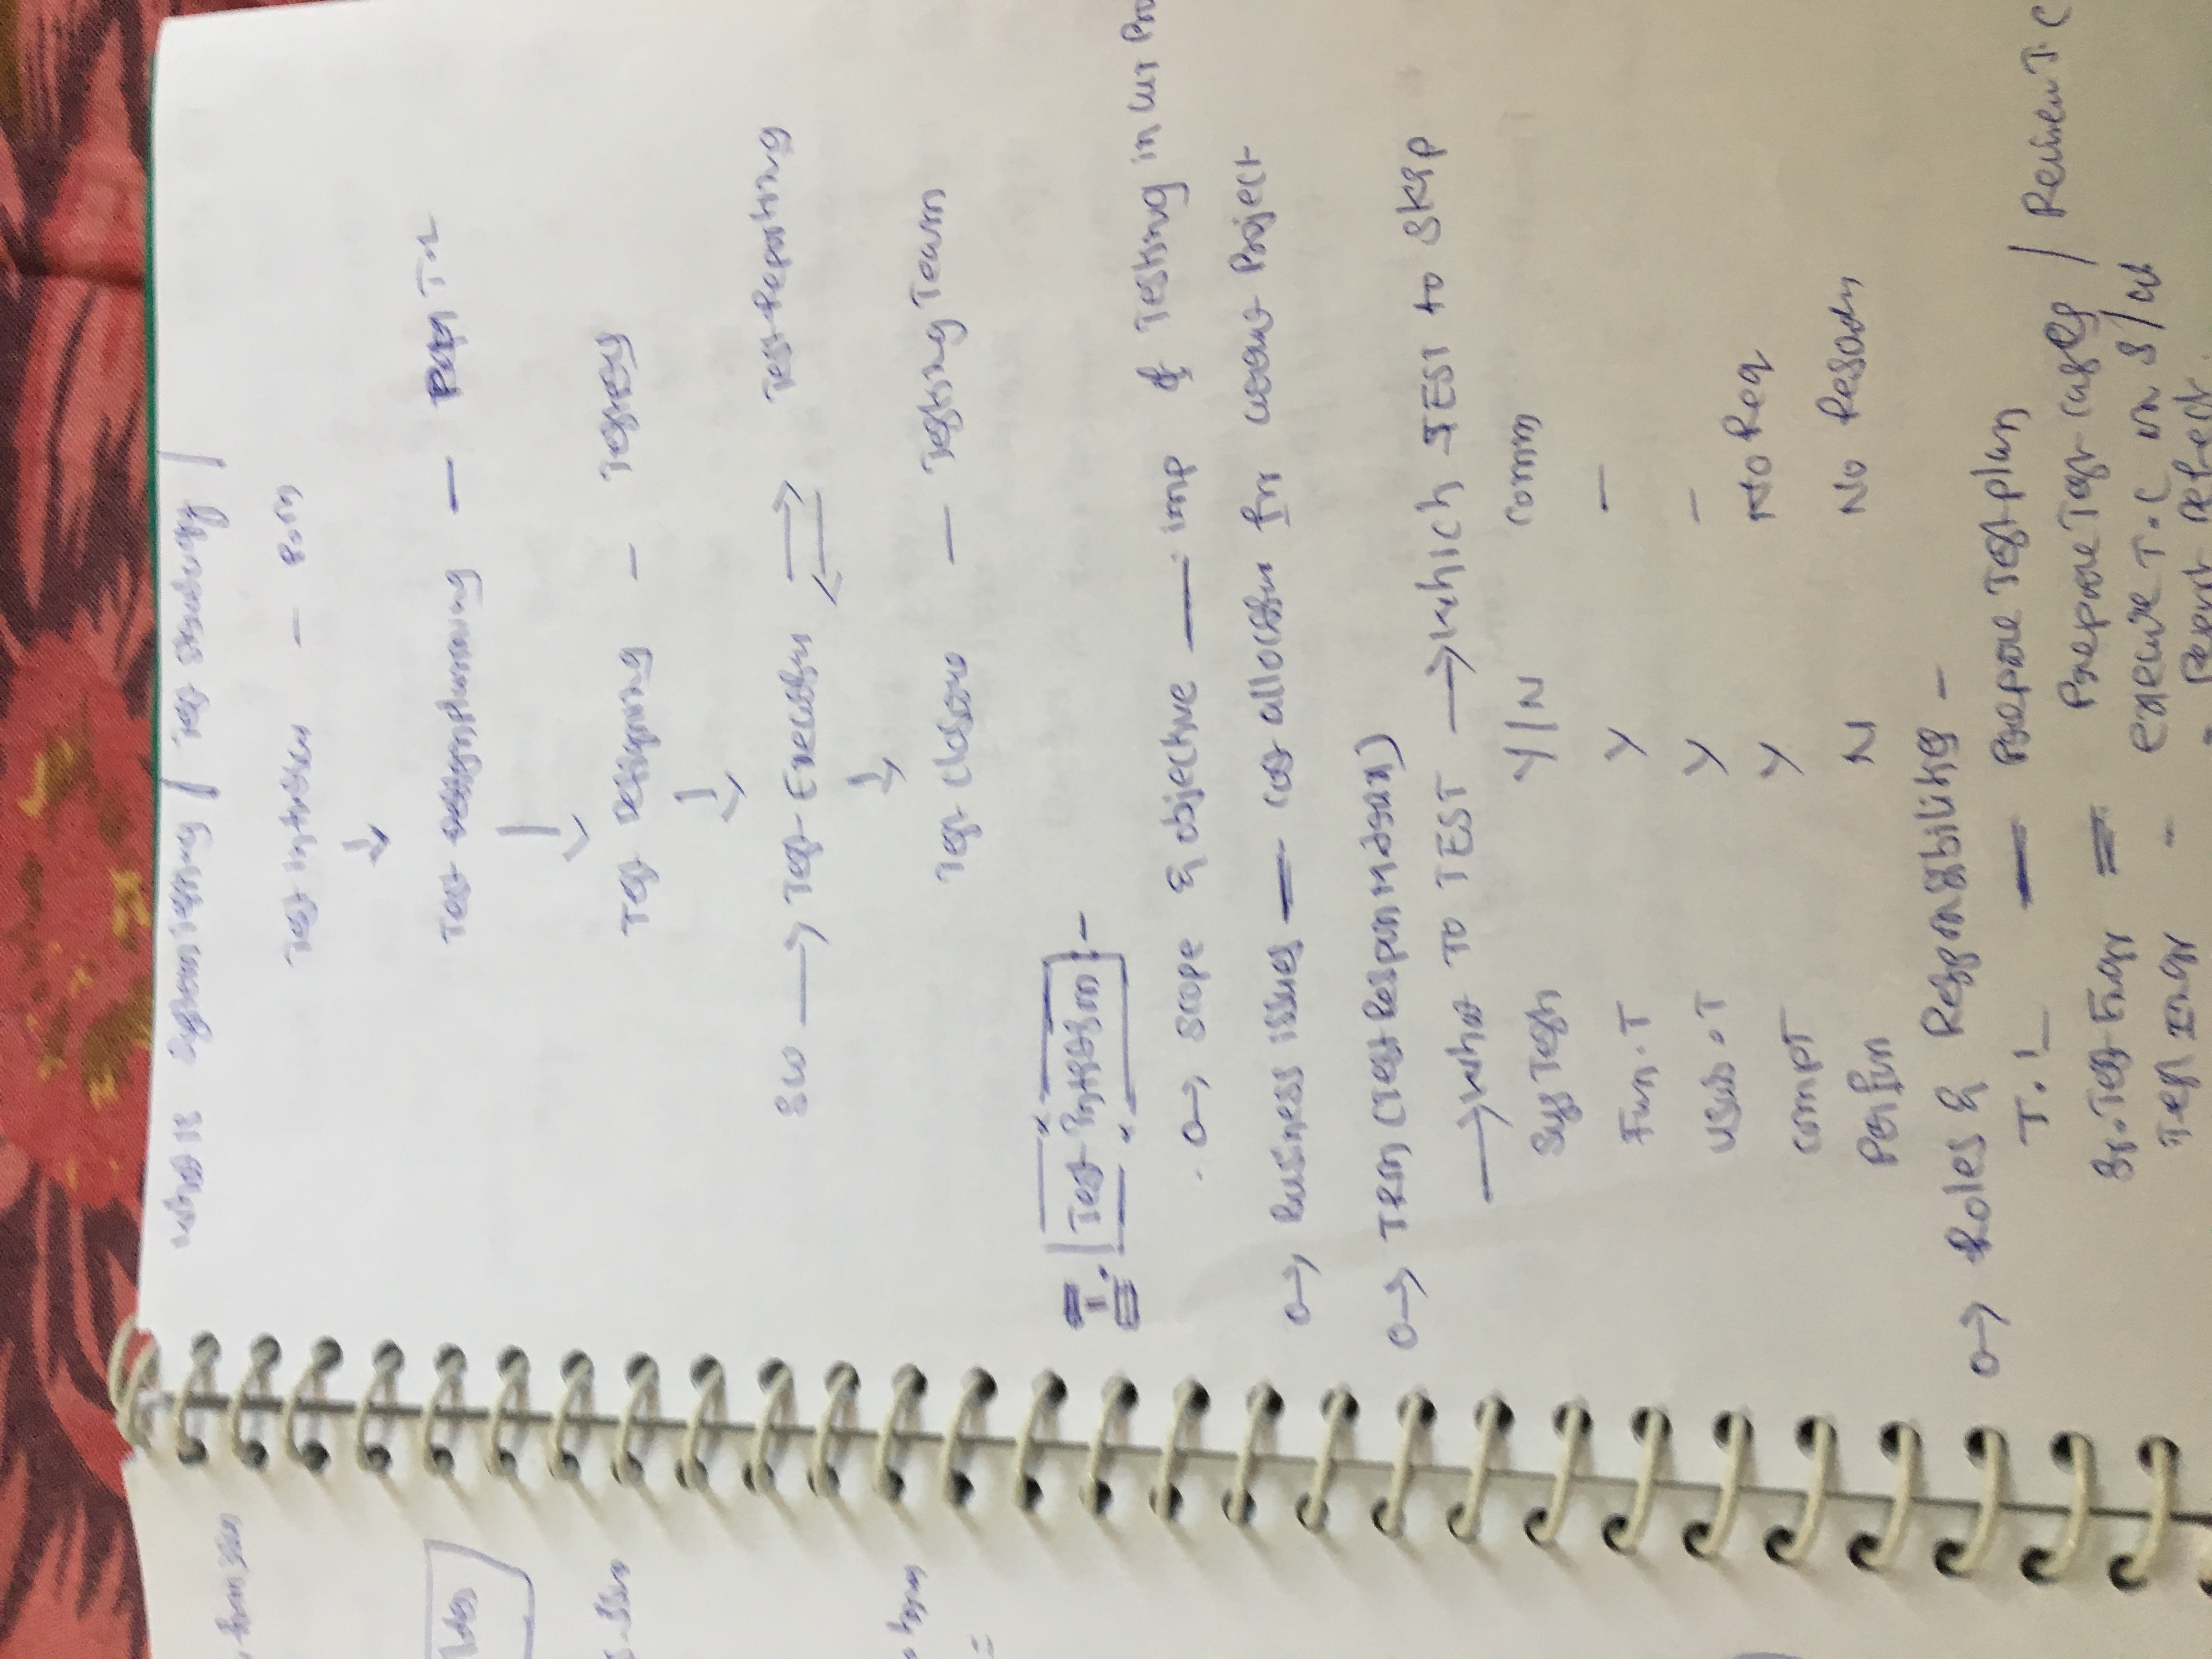 What is System Testing | Test Strategy |
Test Initation — P.M
Test Planning — T.L
Test Designing — Testers
SW → Test Execution ⇄ Test Reporting
Test Closure — Testing Team
I. Test Initation :-
Scope & objective — imp of Testing in our Pro
Business issues — Cost allocation for Project
TRM (Test Respon Matrix)
→ What TO TEST → Which TEST to Skip
Sys Tests Y/N Comm
Fun.T Y —
Usab.T Y —
CompT Y No Req
Perfm N No Resorcs
Roles & Responsibilities —
T.L — Prepare Test plan
Sr. Test Engr = Prepare Test cases / Review T.C
Test Engr - execute T.C on S/w
- Report Defect.